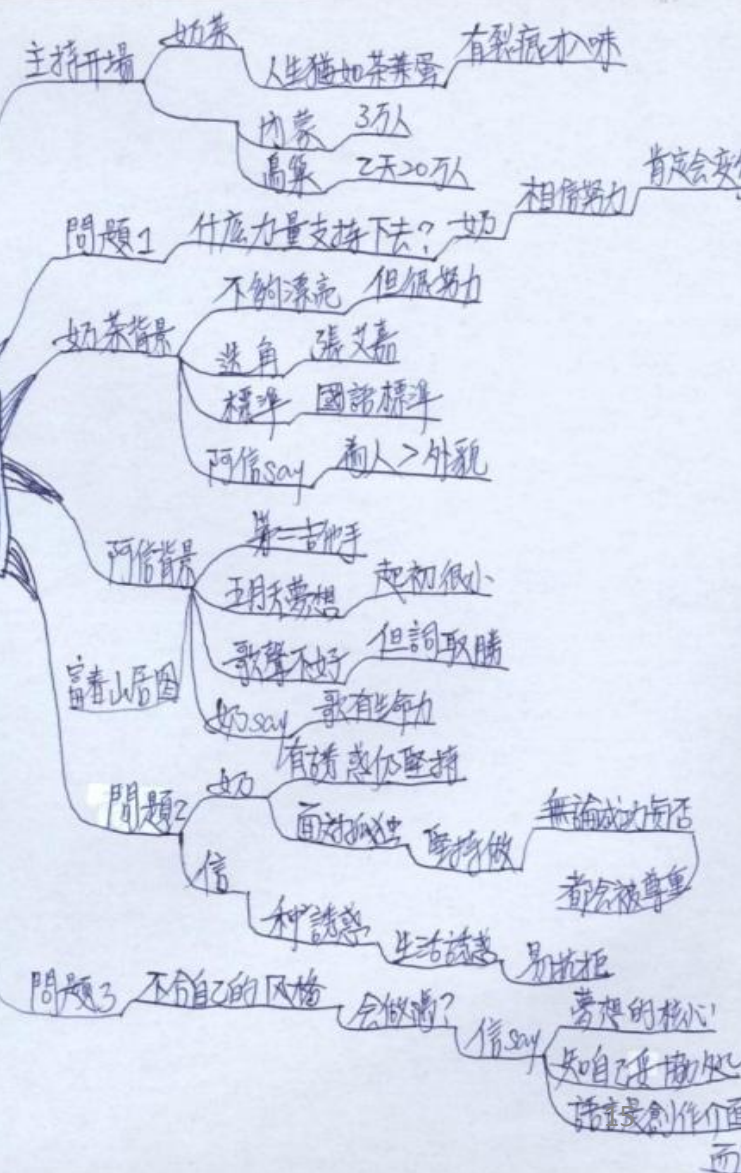 主持开場
奶茶
人生猶如茶葉蛋
有裂痕才入味
内蒙
3万人
鳥巢
2天20万人
問題1
什麼力量支持下去?
奶
相信努力
肯定会变
奶茶背景
不夠漂亮
但很努力
選角
張艾嘉
標準
國語標準
阿信say
為人>外貌
阿信背景
第二吉他手
五月天夢想
起初很小
歌聲不好
但詞取勝
奶say
歌有生命力
富春山居图
問題2
奶
有誘惑仍堅持
面对孤独
堅持做
無論成功与否
都会被尊重
信
种誘惑
生活誘惑
易抗拒
問題3
不合自己的风格
会做嗎?
信say
夢想的核心
知自己妥協
創作介面
而
15